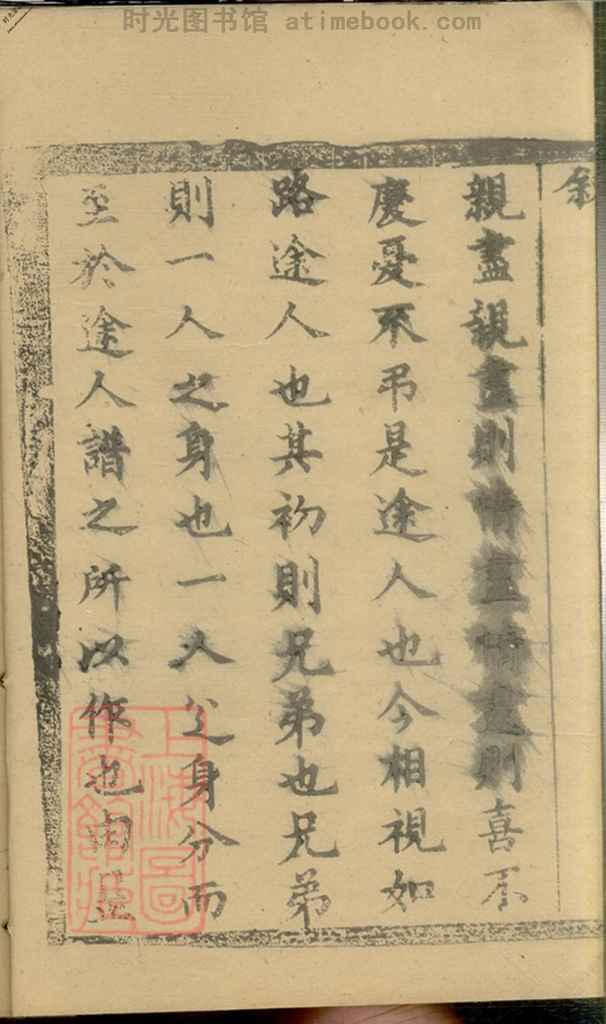 时光图书馆 atimebook.com
親盡親盡則情盡情盡則喜不
慶憂不弔是途人也今相視如
路途人也其初則兄弟也兄弟
則一人之身也一人之身分而
至於途人譜之所以作也
上海圖